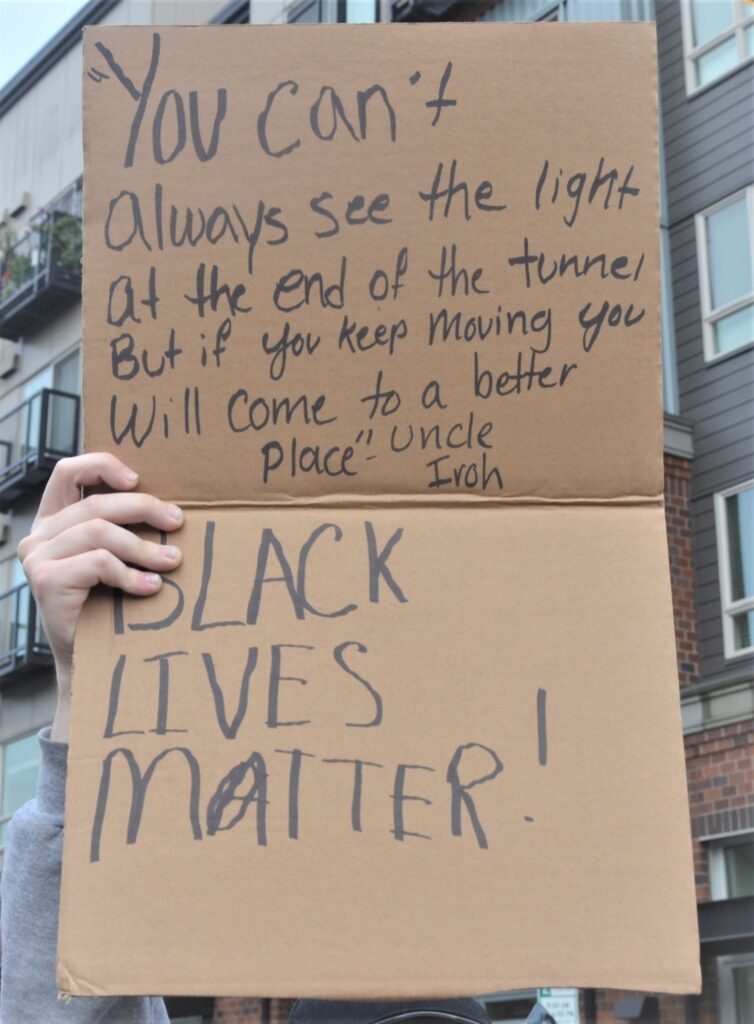 "You can't
always see the light
at the end of the tunnel
But if you keep moving you
Will come to a better
place"- Uncle
Iroh
BLACK
LIVES
MATTER!